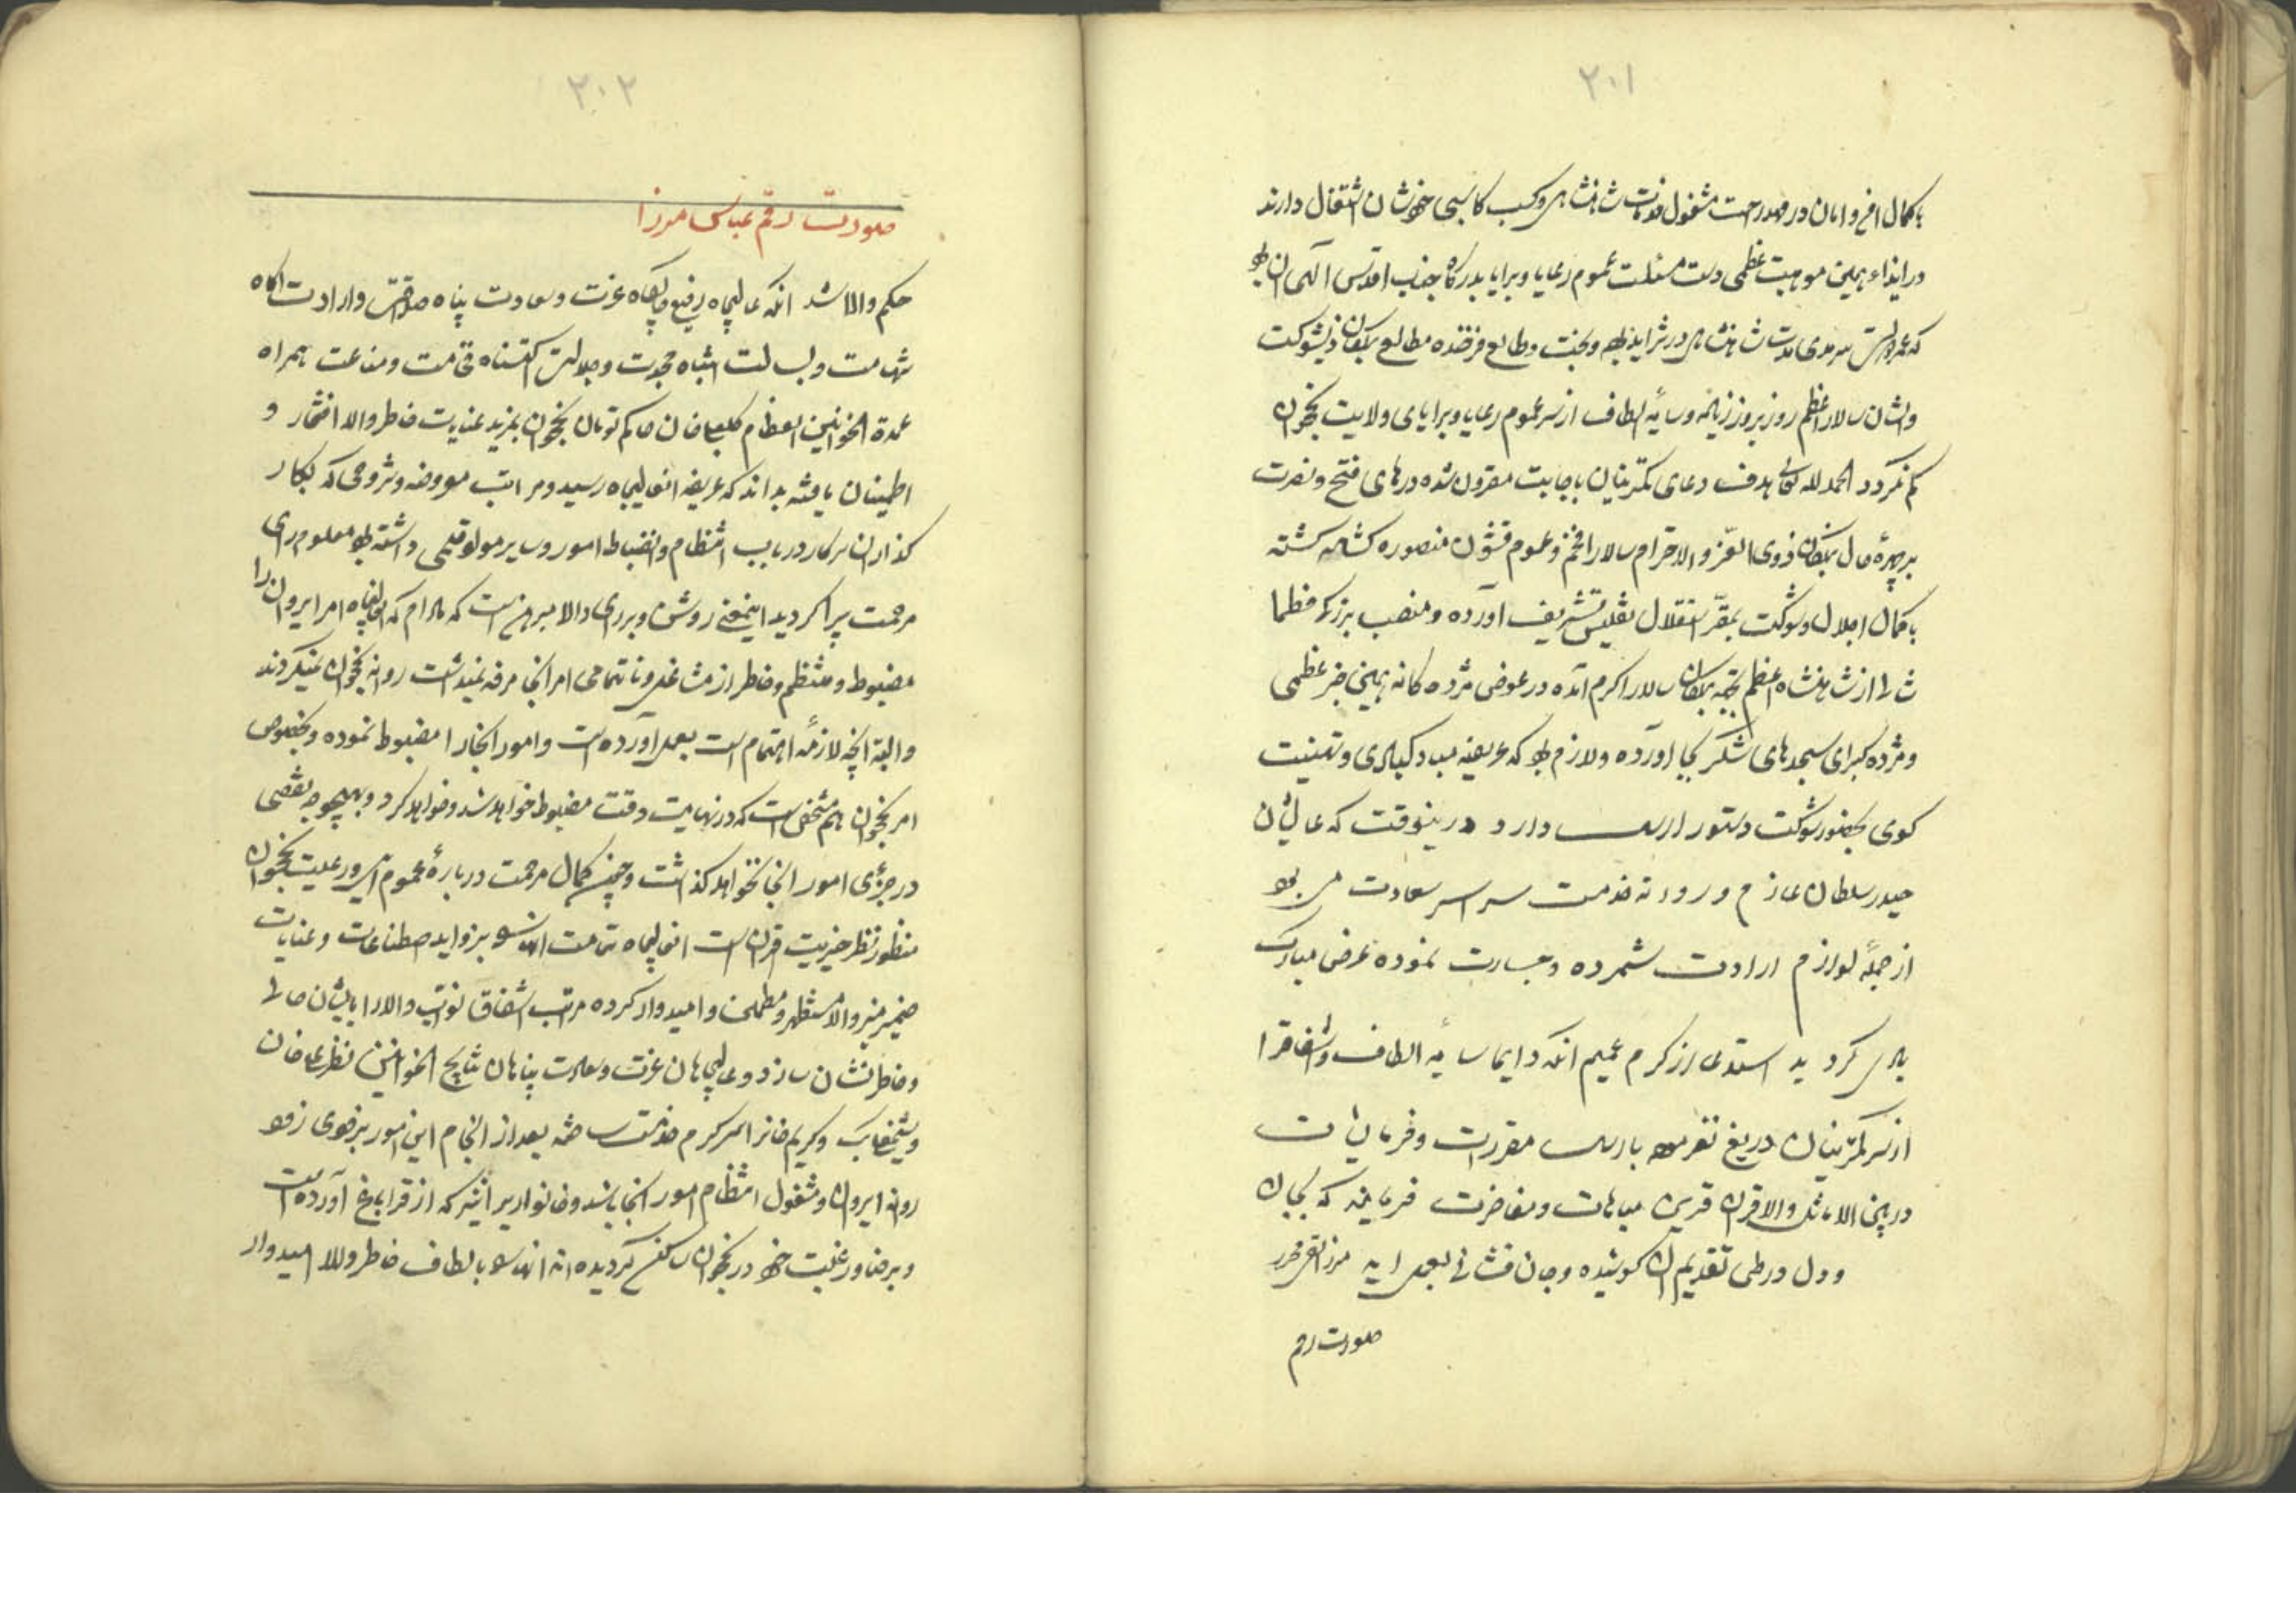 ۲۰۱
بکمال امن و امان در مهد راحت مشغول خدمات شاهنشاهی و کسب کاسبی خودشان اشتغال دارند
در ازاء همین موهبت عظمی دست مسئلت عموم رعایا و برایا بدرگاه جناب اقدس الهی
که عمر و دولت سرمدی مدت شاهنشاهی در تزاید و بخت و طالع فرخنده مطالع بندگان ذیشوکت
والاشان سالار اعظم روز بروز زیاده و سایه الطاف از سر عموم رعایا و برایای ولایت نخجوان
کم نگردد الحمد لله تعالی هدف دعای کمترینان باجابت مقرون شده درهای فتح و نصرت
بر چهره حال بندگان ذوی العز و الاحترام سالار افخم و عموم قشون منصوره گشاده گشته
با کمال اجلال و شوکت بمقر استقلال تفلیس تشریف آورده و منصب بزرگ
از شاهنشاه اعظم بجهة بندگان سالار اکرم آمده در عوض مژده کانه همین خبر عظمی
و مژده کبرای سجدهای شکر بجا آورده و لازم بود که عریضه مبارکبادی و تهنیت
کوی بحضور شوکت دستور ارسال دارد در ینوقت که عالیشان
حیدر سلطان عازم و روانه خدمت سراسر سعادت می بود
از جمله لوازم ارادت شمرده و جسارت نموده بعرض مبارک
گردید استدعا از کرم عمیم آنکه دایما سایه الطاف و اشفاق را
از سر کمترینان دریغ نفرموده بارسال مقررات و فرمایشات
در بین الاماثل والاقران قرین مباهات و مفاخرت فرمایند که بجان
و دل در طی تقدیم آن کوشیده و جان فشانی بعمل اید
صورت رقم
۲۰۲
صورت رقم عباس میرزا
حکم والا شد آنکه عالیجاه رفیع جایگاه عزت و سعادت پناه صداقت و ارادت آگاه
شهامت و بسالت انتباه نجدت و جلالت اکتناه فخامت و مناعت همراه
عمدة الخوانین العظام کلبعلی خان حاکم تومان نخجوان بمزید عنایت خاطر والا افتخار و
اطمینان یافته بداند که عریضه انعالیجاه رسید و مراتب معروضه و شروحی که بکار
گذاران سرکار در باب انتظام و انضباط امور و سایر مواد قلمی داشته بود معلوم رای
مرحمت پیرا گردید اینمعنی روشن و بر رای والا مبرهن است که مادام که انعالیجاه امر ایروان را
مضبوط و منتظم و خاطر از مشاغل و ناتمامی امر انجا مرفه نمیداشت روانه نخجوان نمیگردند
والبته آنچه لازمه اهتمام است بعمل آورده است و امور انجا را مضبوط نموده و بخصوص
امر نخجوان هم مشخص است که در نهایت دقت مضبوط خواهد شد و خواهد کرد و بهیچوجه نقصی
در جزئی امور انجا نخواهد گذاشت و چون کمال مرحمت درباره عموم اهالی و رعیت نخجوان
منظور نظر خیریت قران است انعالیجاه تمامت انها را بزواید اصطناعات و عنایات
ضمیر منیر والا مستظهر و مطمئن و امیدوار کرده مراتب اشفاق نواب والا را بایشان حالی
و خاطر نشان سازد و عالیجاهان عزت و سعادت پناهان نتایج الخوانین نظرعلیخان
و شیخعلی بک و کریم خانرا سرگرم خدمت ساخته بعد از انجام این امور بزودی زود
روانه ایروان و مشغول انتظام امور انجا باشد و خانوادهائی که از قراباغ آورده است
و برضا و رغبت خود در نخجوان ساکن گردیده اند انها را بالطاف خاطر والا امیدوار